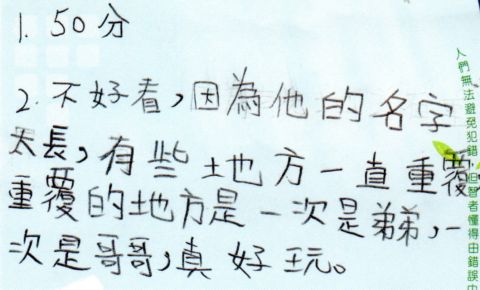 1. 50分
2. 不好看，因為他的名字
太長，有些地方一直重覆，
重覆的地方是一次是弟弟，一
次是哥哥，真好玩。
人們無法避免犯錯，但智者懂得由錯誤中